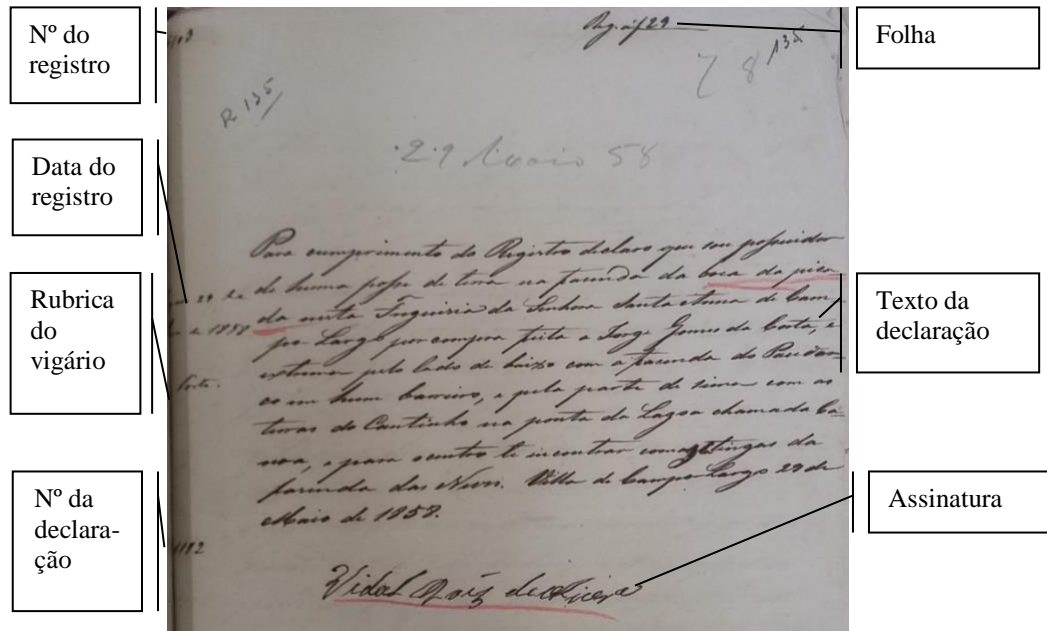 Nº do
registro
Data do
registro
Rubrica
do
vigário
Nº da
declara-
ção
Folha
Texto da
declaração
Assinatura
29
135
78
R 135
29 Maio 58
Para cumprimento do Registro declaro que sou possuidor
de huma posse de terra na fazenda da boca da pica
da nesta Freguizia da Senhora Santa Anna de Cam-
po Largo por compra feita a Jorge Gomes da Costa, e
extrema pelo lado de baixo com a fazenda do
em hum barreiro, e pela parte de sima com as
terras do Cantinho na ponta da Lagoa chamada Ca-
noa, e para o centro te incontrar com
fazenda das Villa de Campo Largo 29 de
Maio de 1858.
1858
1192
Vidal